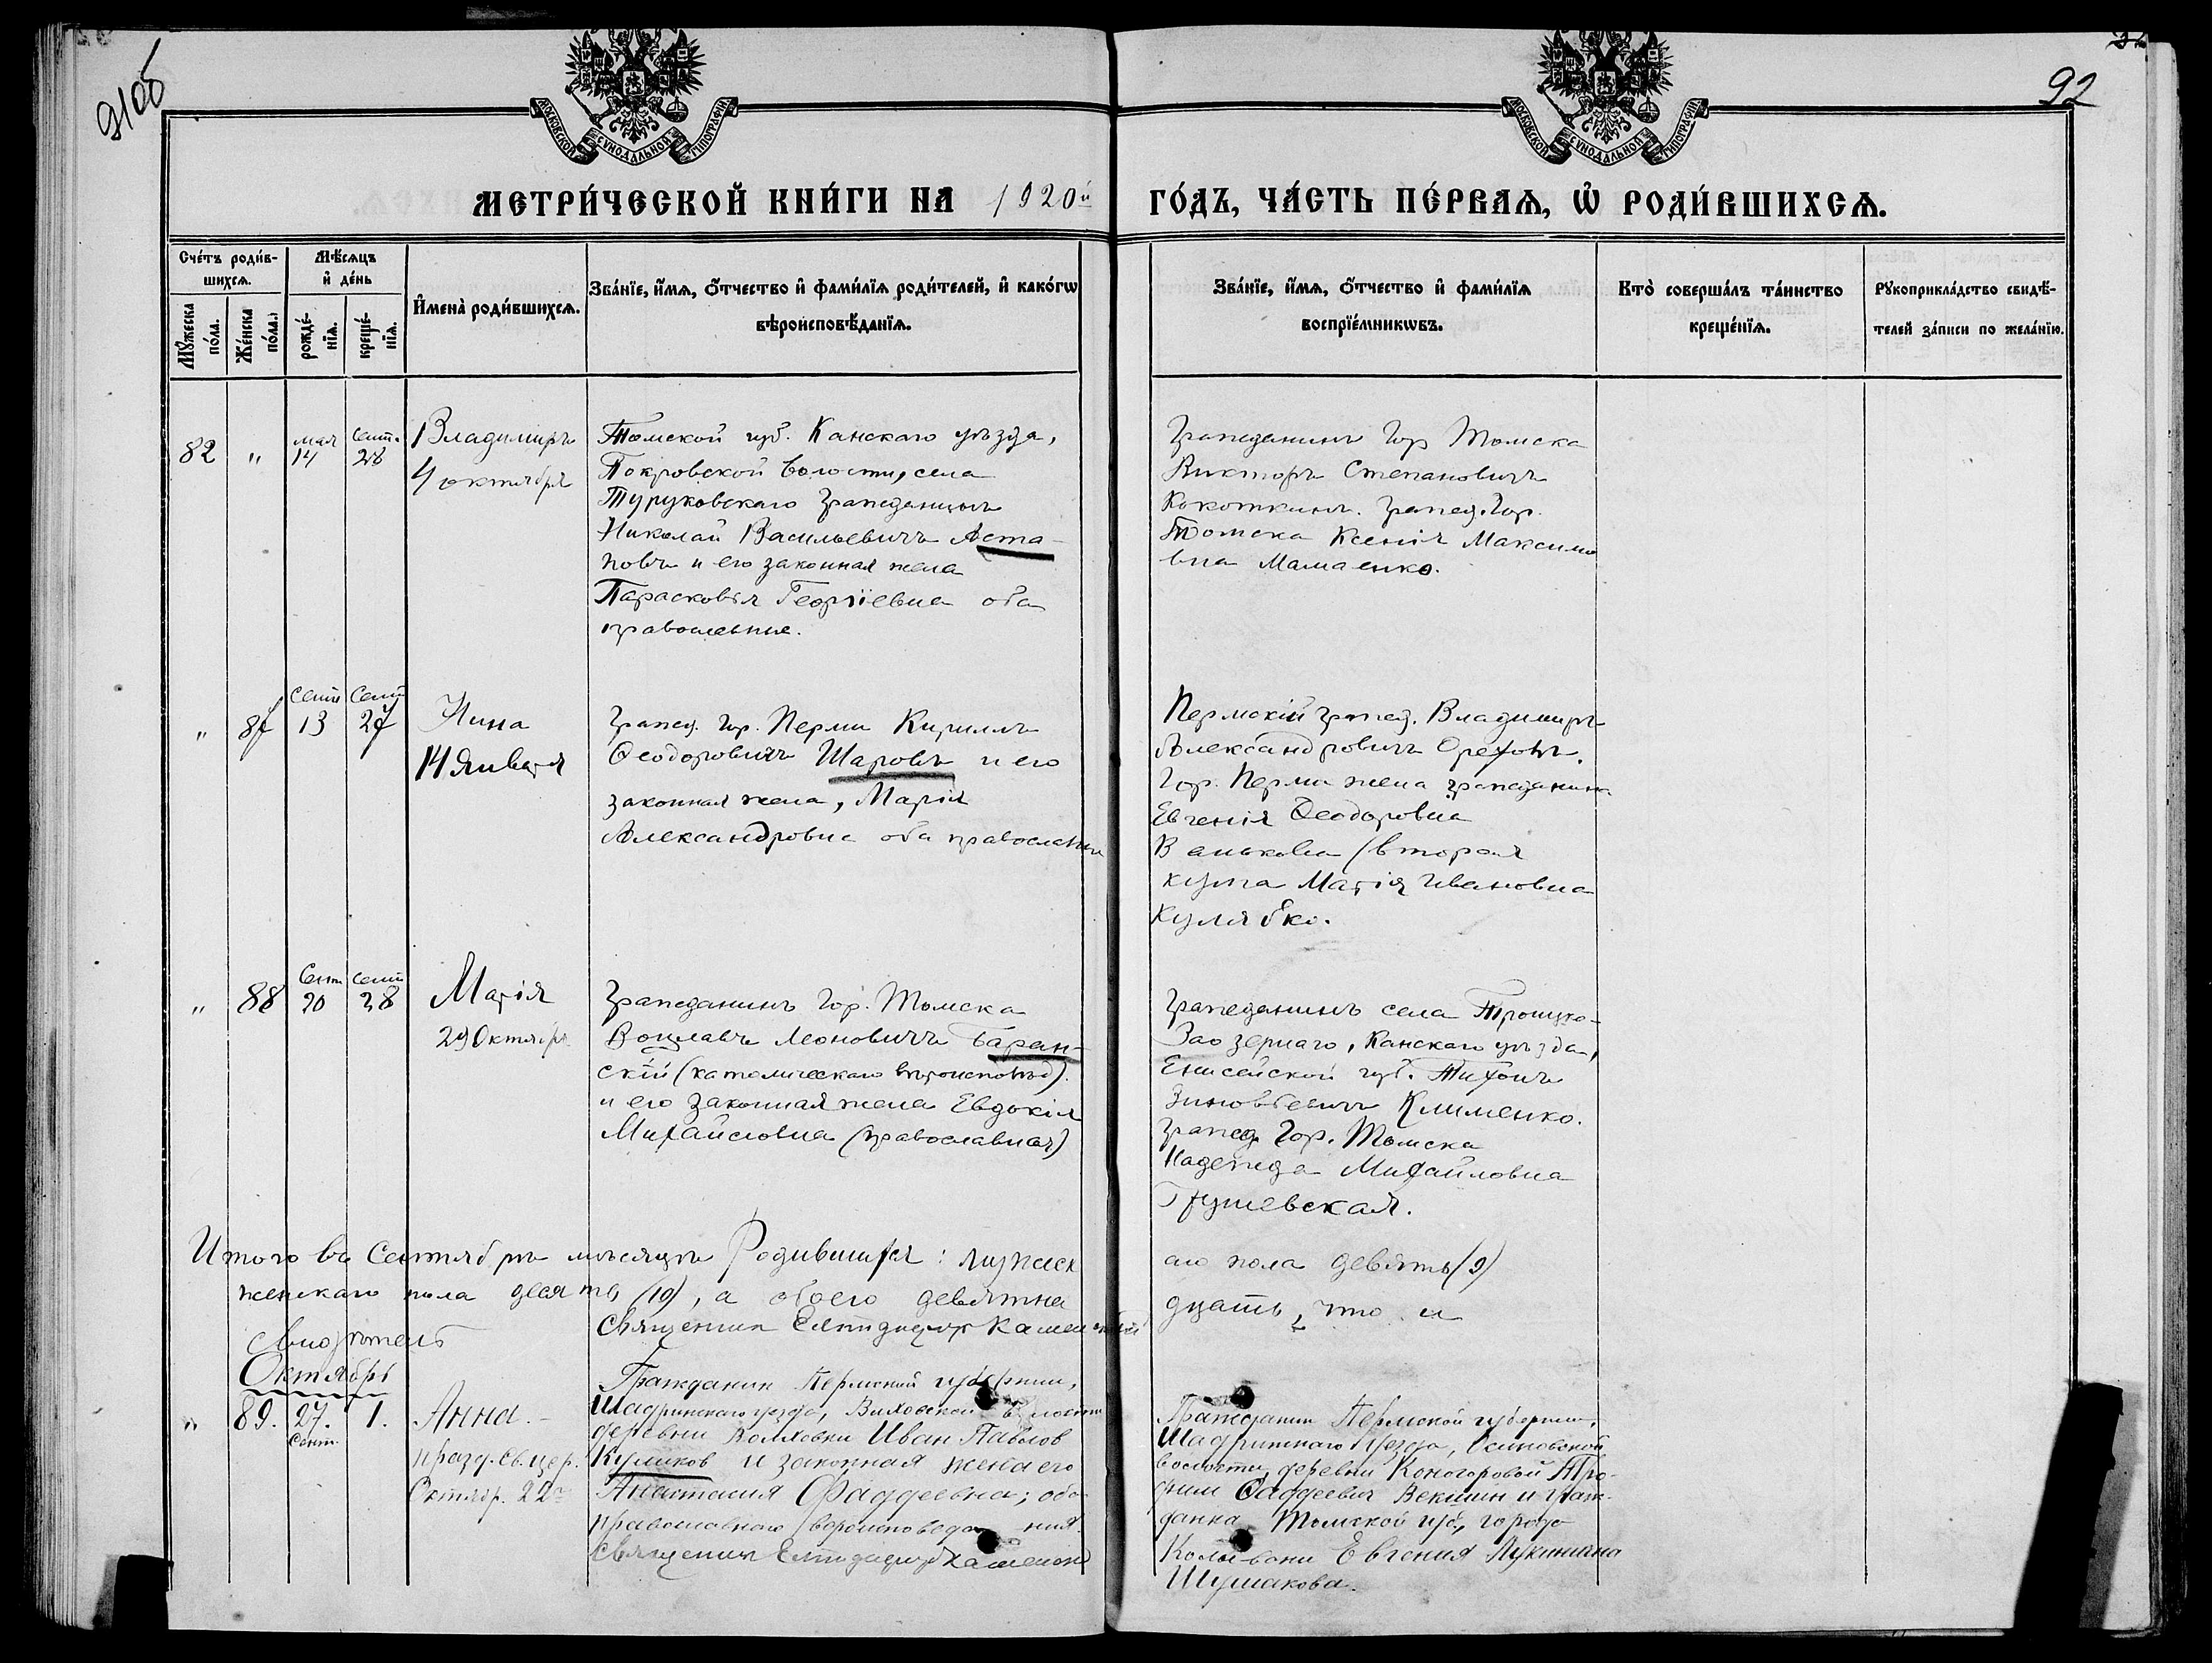 91об
92
МОСКОВСКОЙ СѴНОДАЛЬНОЙ ТИПОГРАФІИ
МОСКОВСКОЙ СѴНОДАЛЬНОЙ ТИПОГРАФІИ
МЕТРИ́ЧЕСКОЙ КНИ́ГИ НА 1920й ГО́ДЪ, ЧА́СТЬ ПЕ́РВАѦ, Ѡ҆ РОДИ́ВШИХСѦ.
Сче́тъ роди́в-
шихсѧ.
Мꙋ́жеска по́ла.
Же́нска по́ла.
Мѣ́сѧцъ
и҆ де́нь
рожде́-
нїѧ.
креще́-
нїѧ.
И҆мена̀ роди́вшихсѧ.
Зва́нїе, и҆́мѧ, ѻ҆́тчество и҆ фами́лїѧ роди́телей, и҆ како́гѡ
вѣроисповѣ́данїѧ.
Зва́нїе, и҆́мѧ, ѻ҆́тчество и҆ фами́лїѧ
воспрїе́мникѡвъ.
Кто̀ соверша́лъ та́инство
креще́нїѧ.
Рꙋкоприкла́дство свидѣ́-
телей за́писи по жела́нїю.
82 " мая 14 сент. 28
Владимиръ
4 октября
Томской губ. Канскаго уѣзда,
Покровской волости, села
Туруковскаго гражданинъ
Николай Васильевичъ Аста-
повъ и его законная жена
Парасковія Георгіевна оба
православные.
Гражданинъ Гор Томска
Викторъ Степановичъ
Кокоткинъ. Гражд. Гор.
Томска Ксенія Максимо
вна Мамаенко.
" 87 Сент 13 Сент 27
Нина
14 Января
Гражд. Гор. Перми Кириллъ
Ѳеодоровичъ Шаровъ и его
законная жена, Марія
Александровна оба православные
Пермскій гражд. Владимиръ
Александровичъ Ореховъ.
Гор. Перми жена гражданина
Евгенія Ѳеодоровна
Ванькова (вторая
кума Марія Ивановна
Кулябко.
" 88 Сент 20 сент 28
Марія
29 Октября
Гражданинъ Гор. Томска
Воцлавъ Леоновичъ Баран-
скій (католическаго вѣроисповѣд).
и его законная жена Евдокія
Михайловна (православная)
Гражданинъ села Троицко-
Заозернаго, Канскаго уѣзда,
Енисейской губ. Тихонъ
Зиновьевичъ Клименко.
Гражд. Гор. Томска
Надежда Михайловна
Грушевская.
Итого въ Сентябрѣ мѣсяцѣ Родившихся: мужск аго пола девять (9)
женскаго пола десять (10), а обоего девятна дцать, что и
свидѣтель Священник Елпидифор Каменский
Октябрь
" 89. 27. Сент. 1.
Анна.-
празд. св. цер.
Октябр. 22го
Гражданин Пермской губернии,
Шадринскаго уезда, волости
деревни Волховки Иван Павлов
Куликов и законная жена его
Анастасия Фаддеевна; оба
православнаго вероисповеда ния.
Священник Елпидифор Каменский
Гражданин Пермской губернии,
Шадринскаго уезда, Осиновской
волости, деревни Коногоровой Тро-
фим Фаддеевич Векшин и граж-
данка Томской губ., города
Колывани Евгения Лукинична
Шумакова.